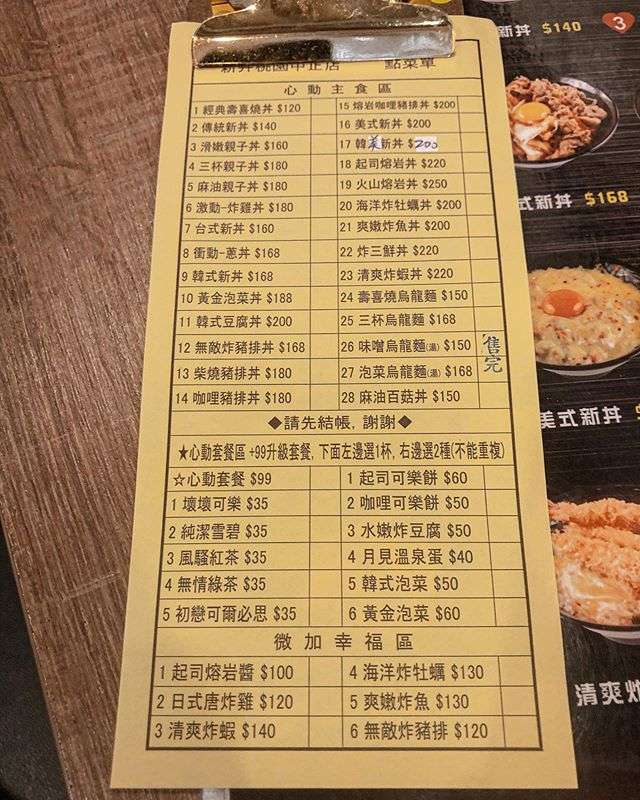 新丼桃園中正店 點菜單
心動主食區
1 經典壽喜燒丼 $120
2 傳統新丼 $140
3 滑嫩親子丼 $160
4 三杯親子丼 $180
5 麻油親子丼 $180
6 激動-炸雞丼 $180
7 台式新丼 $160
8 衝動-蔥丼 $168
9 韓式新丼 $168
10 黃金泡菜丼 $188
11 韓式豆腐丼 $200
12 無敵炸豬排丼 $168
13 柴燒豬排丼 $180
14 咖哩豬排丼 $180
15 熔岩咖哩豬排丼 $200
16 美式新丼 $200
17 韓美新丼 $200
18 起司熔岩丼 $220
19 火山熔岩丼 $250
20 海洋炸牡蠣丼 $200
21 爽嫩炸魚丼 $200
22 炸三鮮丼 $220
23 清爽炸蝦丼 $220
24 壽喜燒烏龍麵 $150
25 三杯烏龍麵 $168
26 味噌烏龍麵(湯) $150
27 泡菜烏龍麵(湯) $168
售完
28 麻油百菇丼 $150
◆請先結帳, 謝謝◆
★心動套餐區 +99升級套餐, 下面左邊選1杯, 右邊選2種(不能重複)
☆心動套餐 $99
1 壞壞可樂 $35
2 純潔雪碧 $35
3 風騷紅茶 $35
4 無情綠茶 $35
5 初戀可爾必思 $35
1 起司可樂餅 $60
2 咖哩可樂餅 $50
3 水嫩炸豆腐 $50
4 月見溫泉蛋 $40
5 韓式泡菜 $50
6 黃金泡菜 $60
微加幸福區
1 起司熔岩醬 $100
2 日式唐炸雞 $120
3 清爽炸蝦 $140
4 海洋炸牡蠣 $130
5 爽嫩炸魚 $130
6 無敵炸豬排 $120
新丼 $140
3
式新丼 $168
美式新丼
清爽炸